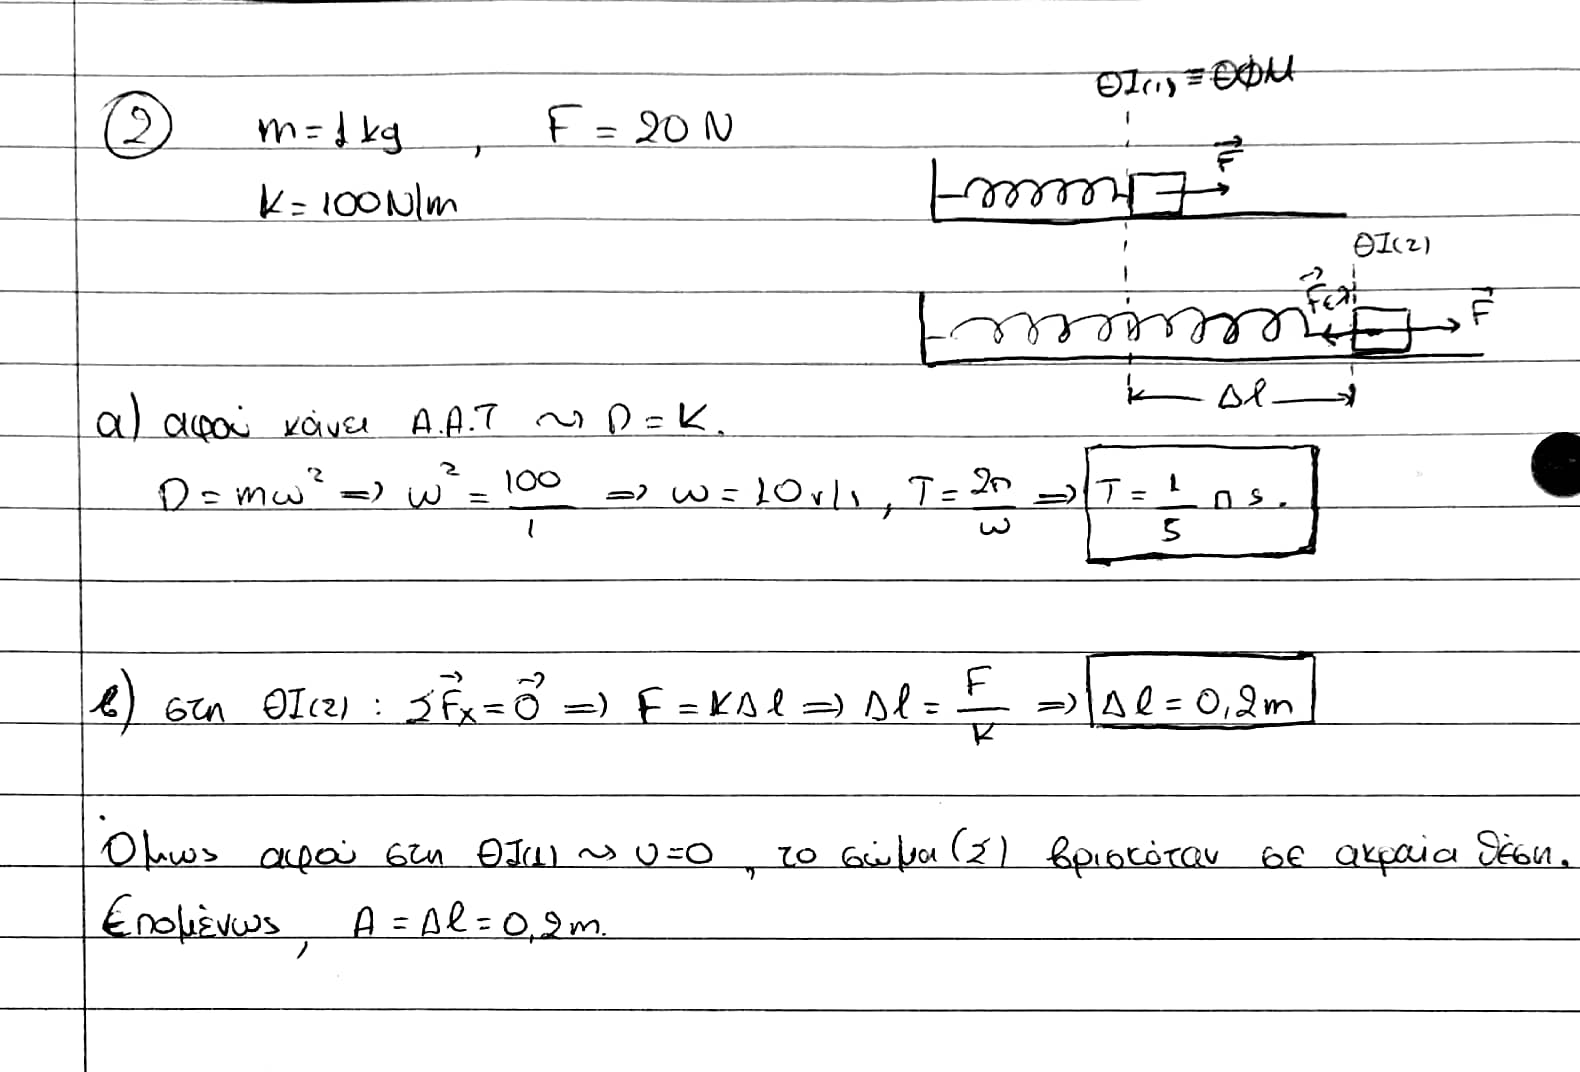 ΘΙ(1) ≡ ΘΦΜ
② m = 1 kg , F = 20 N
F⃗
K = 100 N/m
ΘΙ(2)
F⃗ελ F⃗
Δl
α) αφού κάνει Α.Α.Τ ~> D = K.
D = mω² => ω² = 100/1 => ω = 10 r/s , T = 2π/ω => T = 1/5 π s.
β) στη ΘΙ(2) : ΣF⃗x = 0⃗ => F = KΔl => Δl = F/K => Δl = 0,2m
Όμως αφού στη ΘΙ(1) ~> υ=0 , το σώμα (Σ) βρισκόταν σε ακραία θέση.
Επομένως, A = Δl = 0,2m.